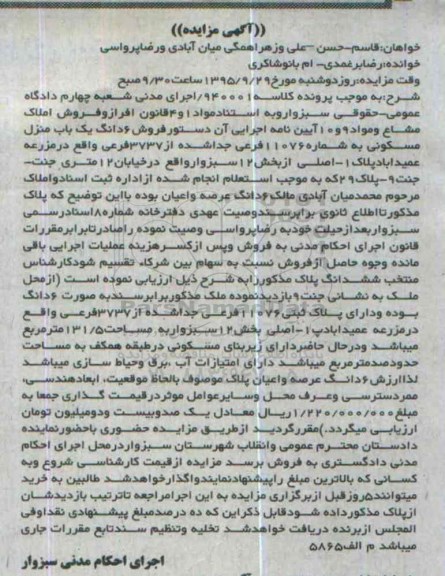 ((آگهی مزایده))
خواهان:قاسم-حسن -علی وزهراهمگی میان آبادی ورضاپرواسی
خوانده:رضابرغمدی- ام بانوشاکری
وقت مزایده:روزدوشنبه مورخ۱۳۹۵/۹/۲۹ساعت۹/۳۰صبح
شرح:به موجب پرونده کلاسه۹۴۰۰۰۱/اجرای مدنی شعبه چهارم دادگاه
عمومی-حقوقی سبزواروبه استنادمواد۱و۴قانون افرازوفروش املاک
مشاع ومواد۹و۱۰آیین نامه اجرایی آن دستورفروش۶دانگ یک باب منزل
مسکونی به شماره۱۱۰۷۶فرعی جداشده از۳۷۳۷فرعی واقع درمزرعه
عمیدابادپلاک۱-اصلی ازبخش۱۲سبزوارواقع درخیابان۱۲متری جنت-
جنت۹-پلاک۲۹که به موجب استعلام انجام شده ازاداره ثبت اسنادواملاک
مرحوم محمدمیان آبادی مالک۶دانگ عرصه واعیان بوده بااین توضیح که پلاک
مذکورتااطلاع ثانوی برابرسندوصیت عهدی دفترخانه شماره۸اسنادرسمی
سبزواربعدازحیات خودبه رضاپرواسی وصیت نموده راصادرتابرابرمقررات
قانون اجرای احکام مدنی به فروش وپس ازکسرهزینه عملیات اجرایی باقی
مانده وجوه حاصل ازفروش نسبت به سهام بین شرکاء تقسیم شودکارشناس
منتخب ششدانگ پلاک مذکوررابه شرح ذیل ارزیابی نموده است (ازمحل
ملک به نشانی جنت۹بازدیدنموده ملک مذکوربرابرسندبه صورت ۶دانگ
بوده ودارای پلاک ثبتی۱۱۰۷۶فرعی جداشده از۳۷۳۷فرعی واقع
درمزرعه عمیدابادپ۱-اصلی بخش۱۲سبزواربه مساحت۱۳۱/۵مترمربع
میباشد ودرحال حاضردارای زیربنای مسکونی درطبقه همکف به مساحت
حدودصدمترمربع میباشد دارای امتیازات آب ،برق وحیاط سازی میباشد
لذاارزش۶دانگ عرصه واعیان پلاک موصوف بالحاظ موقعیت، ابعادهندسی،
ممردسترسی وعرف محل وسایرعوامل موثردرقیمت گذاری جمعا به
مبلغ۱/۲۲۰/۰۰۰/۰۰۰ریال معادل یک صدوبیست ودومیلیون تومان
ارزیابی میگردد.)مقررگردید ازطریق مزایده حضوری باحضورنماینده
دادستان محترم عمومی وانقلاب شهرستان سبزواردرمحل اجرای احکام
مدنی دادگستری به فروش برسد مزایده ازقیمت کارشناسی شروع وبه
کسانی که بالاترین مبلغ راپیشنهادنمایندواگذارخواهدشد طالبین به خرید
میتوانند۵روزقبل ازبرگزاری مزایده به این اجرامراجعه تاترتیب بازدیدشان
ازپلاک مذکورداده شودقابل ذکراین که ده درصدمبلغ پیشنهادی نقداوفی
المجلس ازبرنده دریافت خواهدشد تخلیه وتنظیم سندتابع مقررات جاری
میباشد م الف۵۸۶۵
اجرای احکام مدنی سبزوار